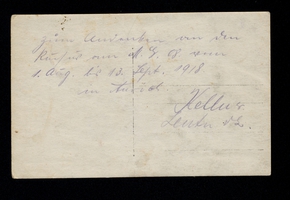 Zum Andenken an den
Kursus am M. G. 08 vom
1. Aug. bis 13. Sept. 1918
in
Keller